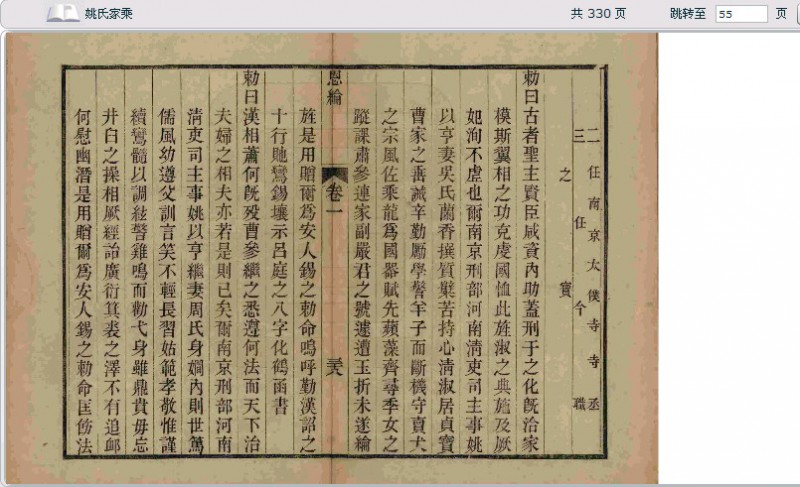 姚氏家乘
共 330 页
跳转至 55 页
二任南京太僕寺寺丞
三任今職
之寳
勅曰古者聖主賢臣咸資內助蓋刑于之化旣治家
模斯翼相之功克虔國恤此旌淑之典施及厥
妃洵不虛也爾南京刑部河南淸吏司主事姚
以亨妻吳氏蘭香撰質糵苦持心淸淑居貞寶
曹家之善誡辛勤勵學謦羊子而斷機守賣犬
之宗風佐乘龍爲國器賦先蘋藻齊尋季女之
蹤課肅參連家副嚴君之號遽遭玉折未遂綸
恩綸
卷一
旌是用贈爾爲安人錫之勅命嗚呼勤漢詔之
十行貤鸞錫壤示呂庭之八字化鶴函書
勅曰漢相蕭何旣歿曹參繼之悉遵何法而天下治
夫婦之相夫亦若是則已矣爾南京刑部河南
淸吏司主事姚以亨繼妻周氏身嫺內則世篤
儒風幼遵父訓言笑不輕長習姑範孝敬惟謹
續鸞髓以調絃警雞鳴而勅弋身雖鼎貴毋忘
井臼之操相厥經詒廣衍箕裘之澤不有追卹
何慰幽潛是用贈爾爲安人錫之勅命匡飭法